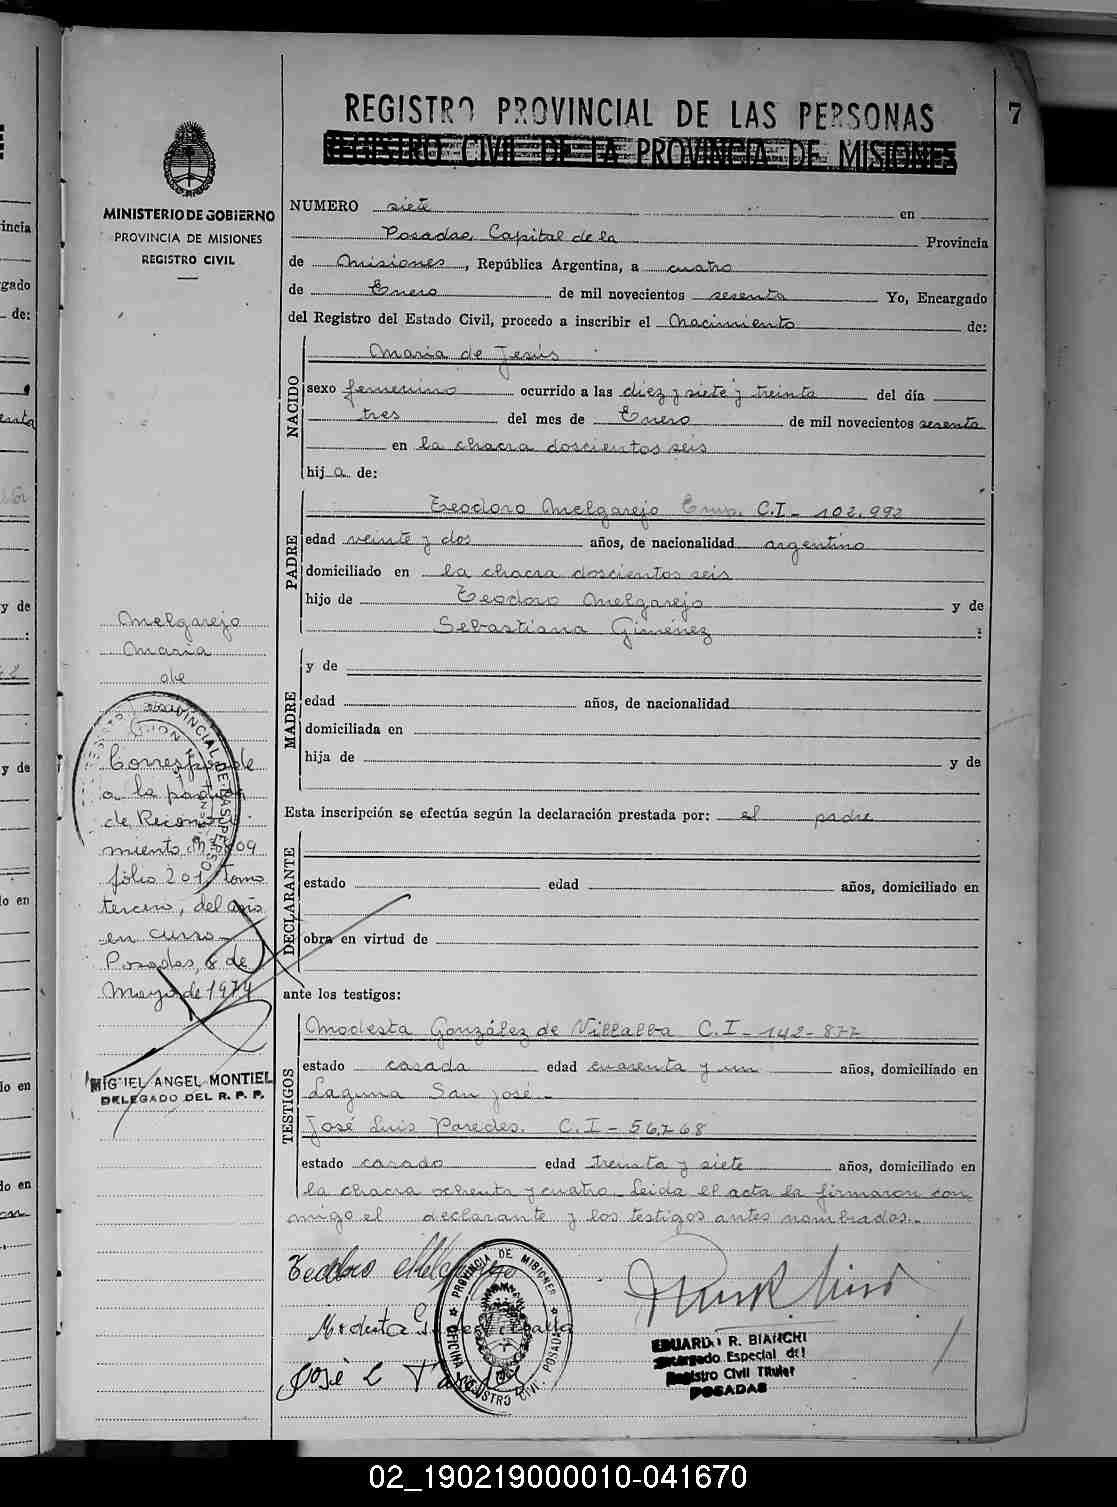 REGISTRO PROVINCIAL DE LAS PERSONAS
7
REGISTRO CIVIL DE LA PROVINCIA DE MISIONES
MINISTERIO DE GOBIERNO
PROVINCIA DE MISIONES
REGISTRO CIVIL
NUMERO siete en
Posadas, Capital de la Provincia
de Misiones, República Argentina, a cuatro
de Enero de mil novecientos sesenta Yo, Encargado
del Registro del Estado Civil, procedo a inscribir el Nacimiento de:
NACIDO
Maria de Jesús
sexo femenino ocurrido a las diez y siete y treinta del día
tres del mes de Enero de mil novecientos sesenta
en la chacra doscientos seis
hija de:
PADRE
Teodoro Melgarejo C.I - 102.992
edad veinte y dos años, de nacionalidad argentino
domiciliado en la chacra doscientos seis
hijo de Teodoro Melgarejo y de
Sebastiana Giménez :
MADRE
y de
edad años, de nacionalidad
domiciliada en
hija de y de
Esta inscripción se efectúa según la declaración prestada por: el padre
DECLARANTE
estado edad años, domiciliado en
obra en virtud de
ante los testigos:
TESTIGOS
Modesta González de Villalba C.I - 142-877
estado casada edad cuarenta y un años, domiciliado en
Laguna San José.-
José Luis Paredes. C.I - 56268
estado casado edad treinta y siete años, domiciliado en
la chacra ochenta y cuatro. Leida el acta la firmaron con
migo el declarante y los testigos antes nombrados.-
Melgarejo
Maria
de
Jesús
Corresponde
a la partida
de Reconoci
miento
folio 201, tomo
tercero, del año
en curso-
Posadas, 8 de
Mayo de 1974
MIGUEL ANGEL MONTIEL
DELEGADO DEL R. P. P.
Teodoro Melgarejo
Modesta G. de Villalba
José L Paredes
PROVINCIA DE MISIONES
OFICINA REGISTRO CIVIL. POSADAS
EDUARDO R. BIANCHI
Encargado Especial del
Registro Civil Titular
POSADAS
02_190219000010-041670